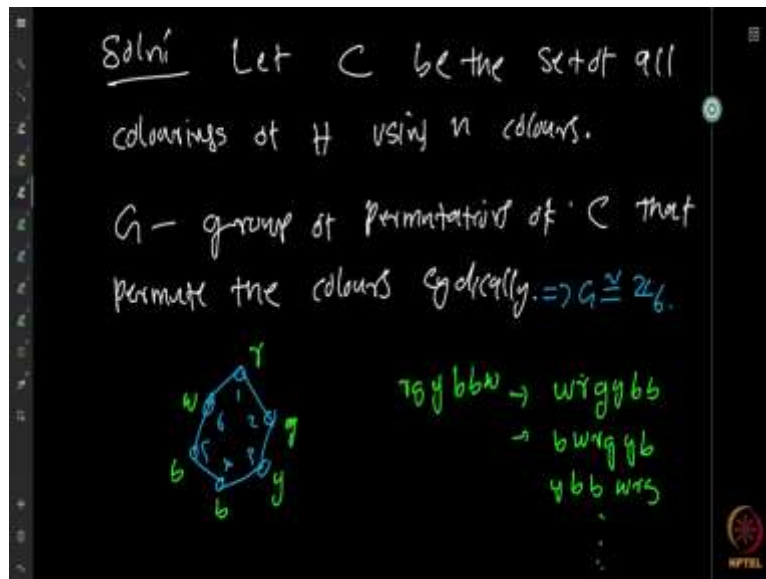 Soln: Let C be the set of all
colourings of H using n colours.
G - group of permutations of C that
permute the colours cyclically. => G ≅ ℤ6.
r
w g
1
6 2
5 3
4
b y
b
rgybbw → wrgybb
→ bwrgyb
ybbwrg
NPTEL